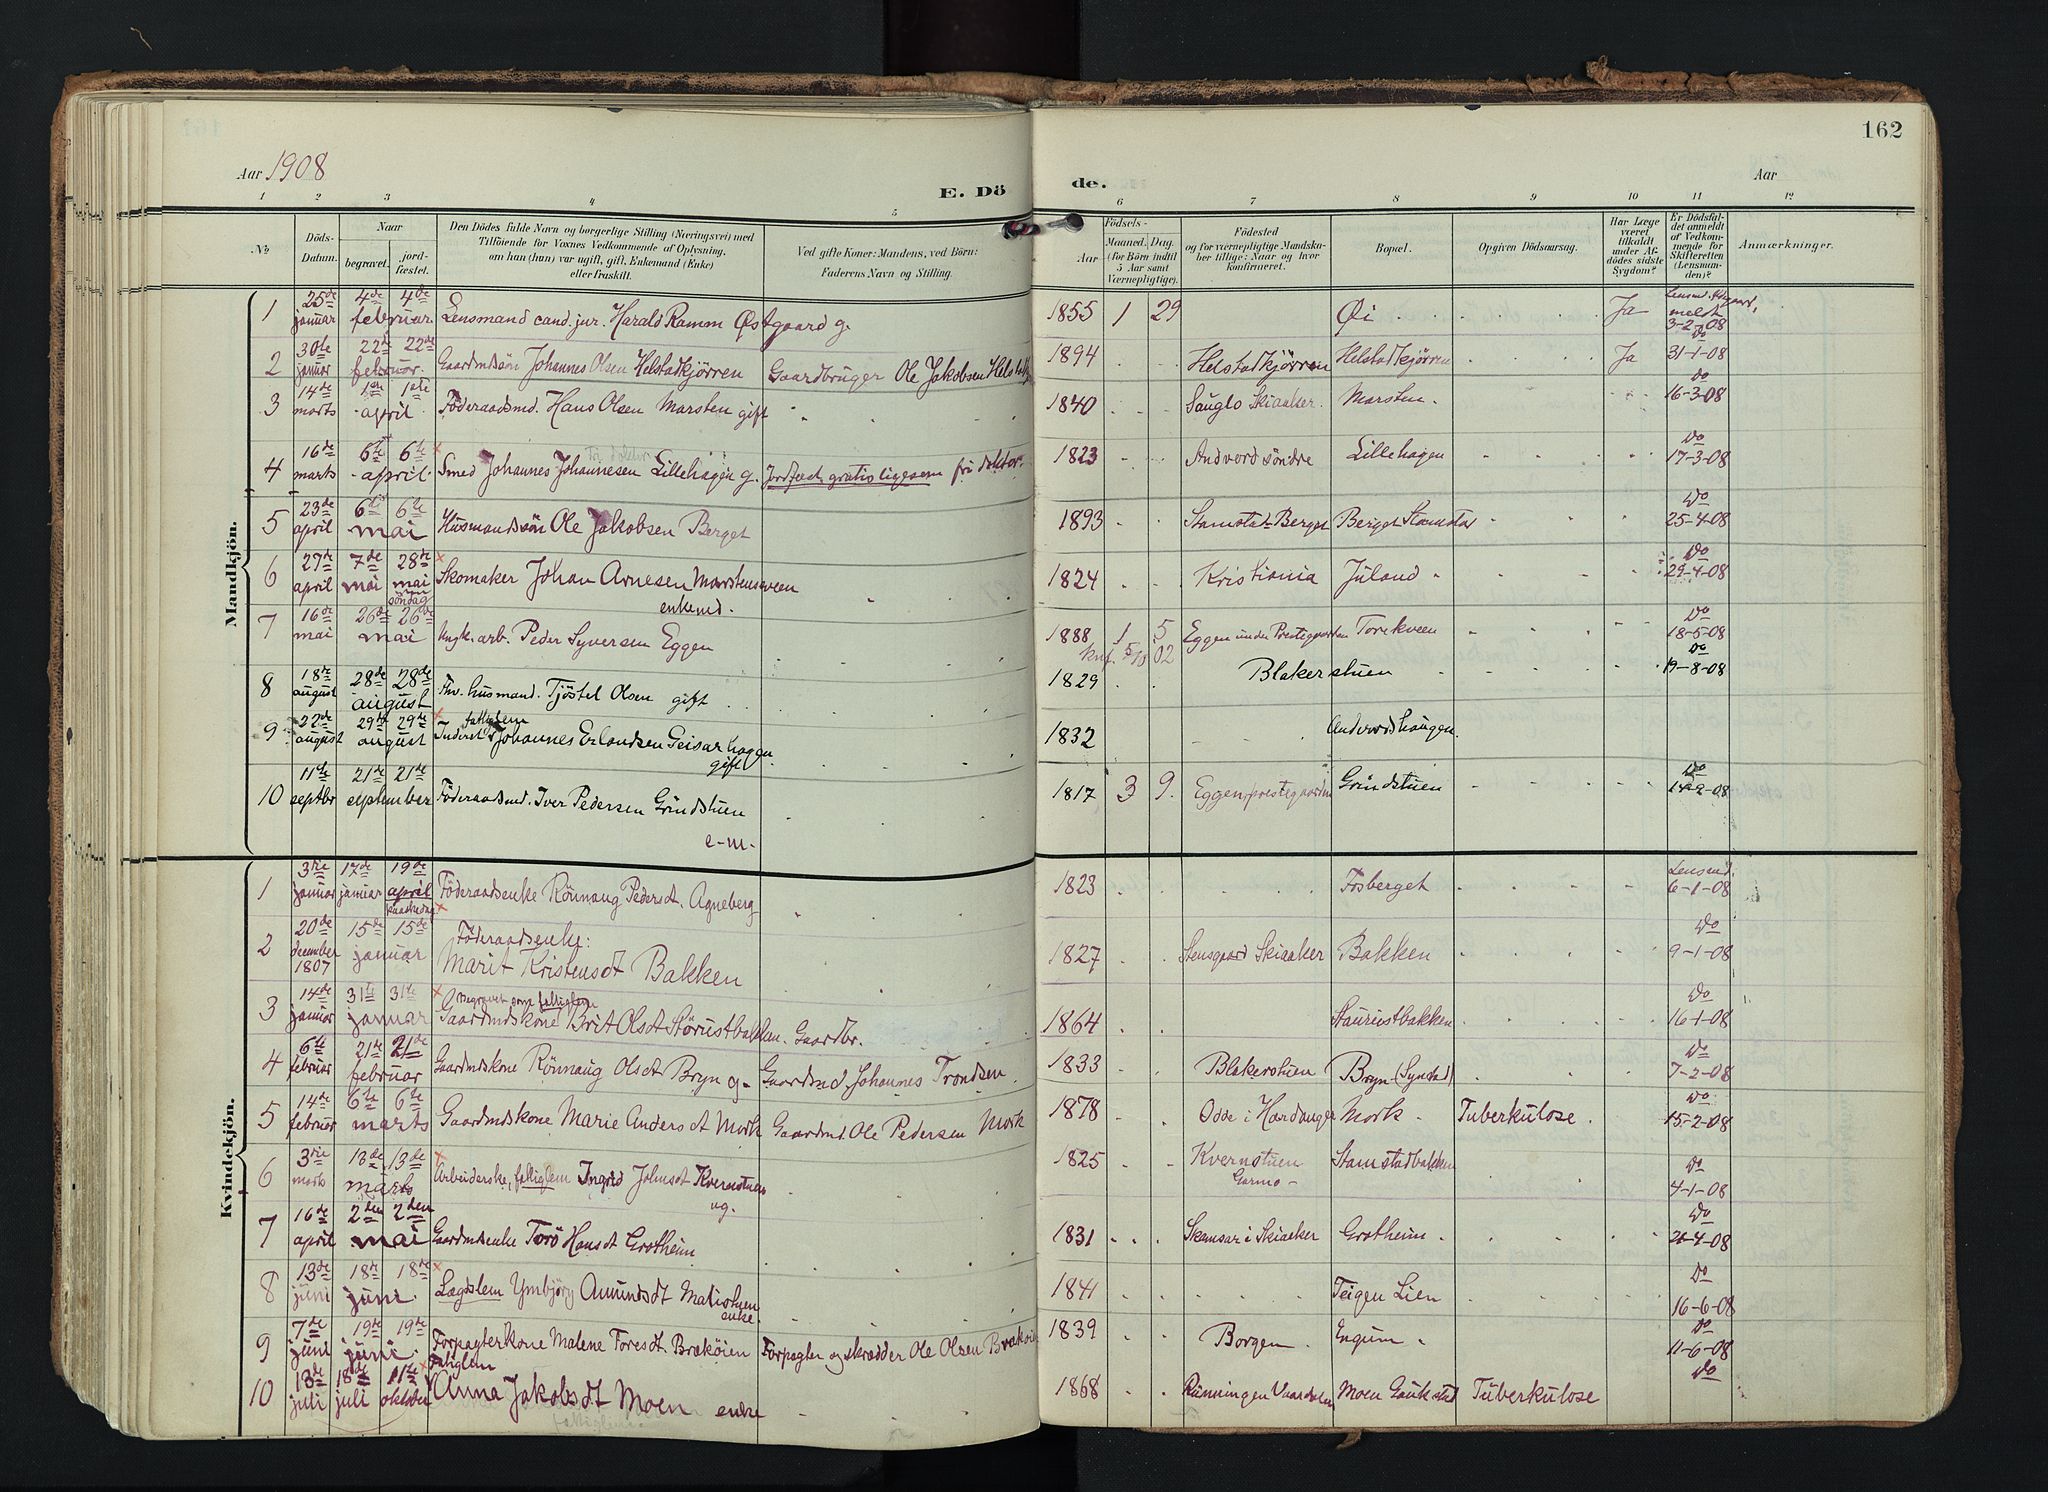 162
Aar 1908
E. Dö
de.
Aar
1 2 3 4 5 6 7 8 9 10 11 12
No
Döds-Datum.
Naar
begravet.
jord-fæstet.
Den Dödes fulde Navn og borgerlige Stilling (Næringsvei) med
Tilföiende for Voxnes Vedkommende af Oplysning,
om han (hun) var ugift, gift, Enkemand (Enke)
eller fraskilt.
Ved gifte Koner: Mandens, ved Börn:
Faderens Navn og Stilling.
Födsels-
Aar
Maaned. Dag.
(for Börn indtil
5 Aar samt
Værnepligtige).
Födested
og for værnepligtige Mandska-
ber tillige: Naar og hvor
konfirmeret.
Bopæl.
Opgiven Dödsaarsag.
Har Læge
været
tilkaldt
under Af-
dödes sidste
Sygdom?
Er Dödsfal-
det anmeldt
af Vedkom-
mende for
Skifteretten
(Lensman-
den)?
Anmærkninger.
Mandkjön.
1 25de januar 4de 4de februar Lensmand cand. jur. Harald Ramm Østgaard g. 1855 1 29 Øi Ja Lensmd. meldt 3-2-08
2 30te januar 22de 22de februar Gaardmdsön Johannes Olsen Helstadkjörren Gaardbruger Ole Jakobsen 1894 Helstadkjörren Helstadkjörren Ja do 31-1-08
3 14de marts 1ste 1ste april Föderaadsmd. Hans Olsen Marsten gift 1840 Skiaaker Marsten do 16-3-08
4 16de marts 6te 6te april Smed Johannes Johannesen Lillehagen g. Jordfæst gratis ligesom fri doktor 1823 Andvord söndre Lillehagen do 17-3-08
5 23de april 6te 6te mai Husmandssön Ole Jakobsen Berget 1893 Stamstad-Berget Berget Stamstad do 25-4-08
6 27de april 7de mai 28de mai söndag Skomaker Johan Arnesen Marstensveen enkemd. 1824 Kristiania Juland do 29-4-08
7 16de mai 26de 26de mai Ungk. arb. Peder Syversen Eggen 1888 1 5 knf. 5/10 02 Eggen under Prestegaarden Torekveen do 18-5-08
8 18de august 28de 28de august Fhv. husmand. Tjöstel Olsen gift 1829 Blakerstuen do 19-8-08
9 22de august 29de 29de august Inderst fattiglem Johannes Erlandsen Geisarhagen gift 1832 Andvordshaugen
10 11te septbr 21de 21de september Föderaadsmd. Iver Pedersen Grindstuen e-m. 1817 3 9. Eggen, prestegaarden Grindstuen do 14-9-08
Kvindekjön.
1 3die januar 17de januar 19de april Föderaadsenke Rönnaug Pedersdt. Agneberg 1823 Fosberget Lensmd. 6-1-08
2 20de december 1807 15de 15de januar Föderaadsenke:
Marit Kristensdt Bakken 1827 Stensgaard Skiaaker Bakken do 9-1-08
3 14de januar 31te 31te januar Begravet som fattiglem
Gaardmdskone Brit Olsdt Störustbakken. Gaardbr. 1864 Staurustbakken do 16-1-08
4 6te februar 21de 21de februar Gaardmdskone Rönnaug Olsdt Bryn g. Gaardmd. Johannes Trondsen 1833 Blakerstuen Bryn (Synstad) do 7-2-08
5 14de februar 6te 6te marts Gaardmdskone Marie Andersdt Mork Gaardmd. Ole Pedersen Mork 1878 Odde i Hardanger Mork Tuberkulose. do 15-2-08
6 3die marts 13de 13de marts Arbeiderske, fattiglem Ingrid Johnsdt Kvernstuen ug. 1825 Kvernstuen Garmo Stamstadbakken do 4-1-08
7 16de april 2den 2den mai Gaardmdsenke Torö Hansdt Grotheim 1831 Skamsar i Skiaaker Grotheim do 21-4-08
8 13de juni 18de 18de juni. Lægdslem Ymbjörg Amundsdt Matistuen enke. 1841 Teigen Lien do 16-6-08
9 7de juni 19de 19de juni. Forpagterkone Malene Toresdt. Bræköien Forpagter og skrædder Ole Olsen 1839 Borgen Engum do 11-6-08
10 18de juli 18de juli 11te oktober Fattiglem
Anna Jakobsdt Moen enke 1868 Rünningen Vaardalen Moen Gaukstad Tüberkulose do